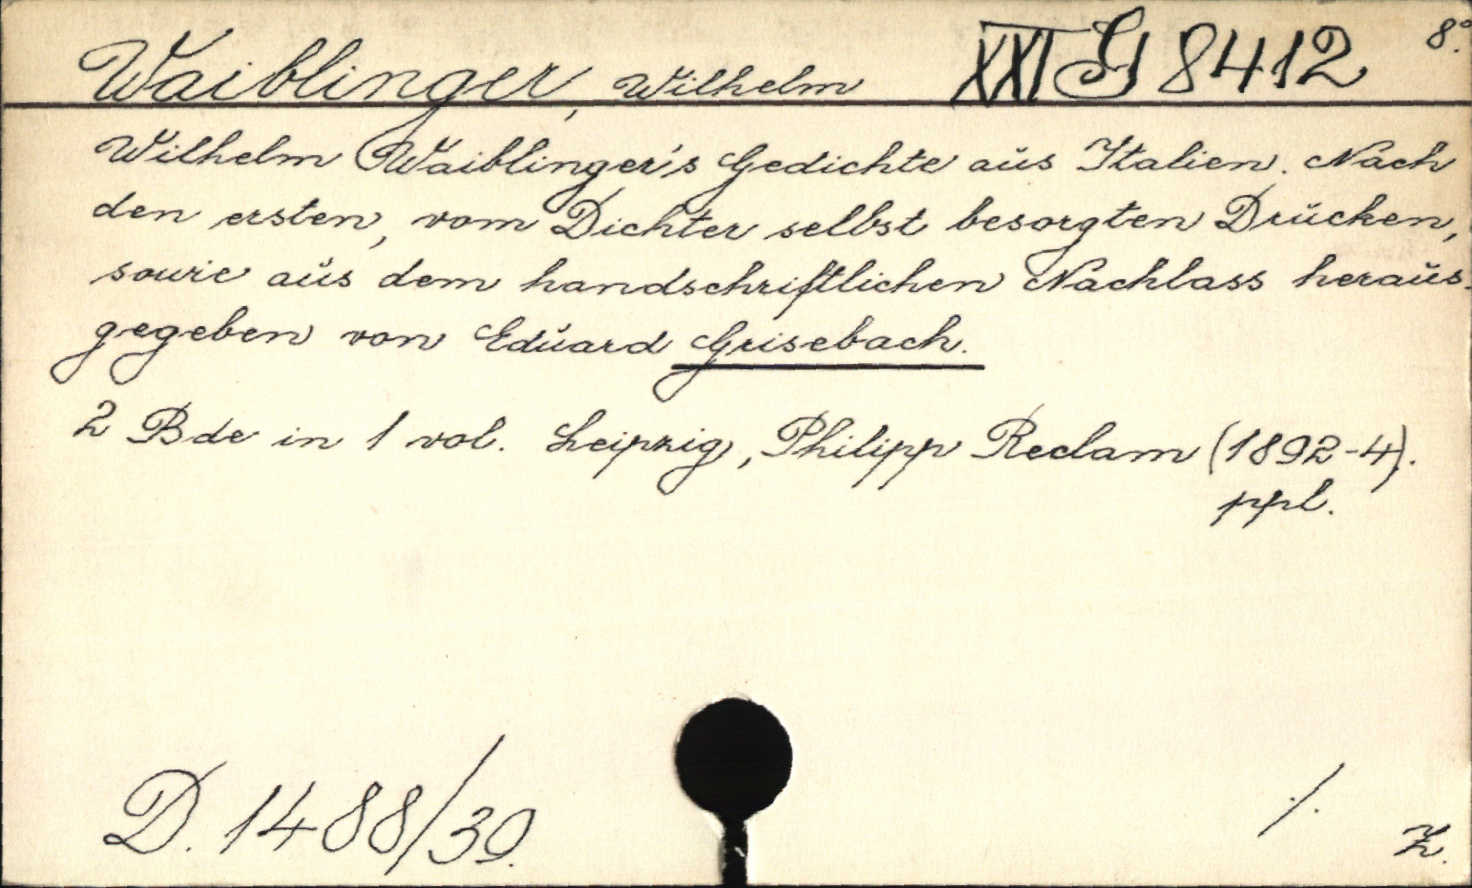 Waiblinger, Wilhelm XXI G 8412 8°.
Wilhelm Waiblinger's Gedichte aus Italien. Nach
den ersten, vom Dichter selbst besorgten Drucken,
sowie aus dem handschriftlichen Nachlass heraus-
gegeben von Eduard Grisebach.
2 Bde in 1 vol. Leipzig, Philipp Reclam (1892-4).
ppl.
D. 1488/39.
./.
Z.